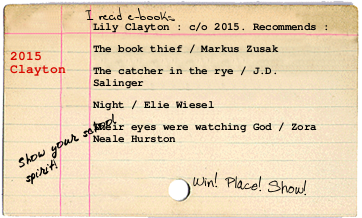 I read e-books
Lily Clayton : c/o 2015. Recommends :
2015
Clayton
The book thief / Markus Zusak
The catcher in the rye / J.D.
Salinger
Night / Elie Wiesel
Their eyes were watching God / Zora
Neale Hurston
Show your school
spirit!
Win! Place! Show!